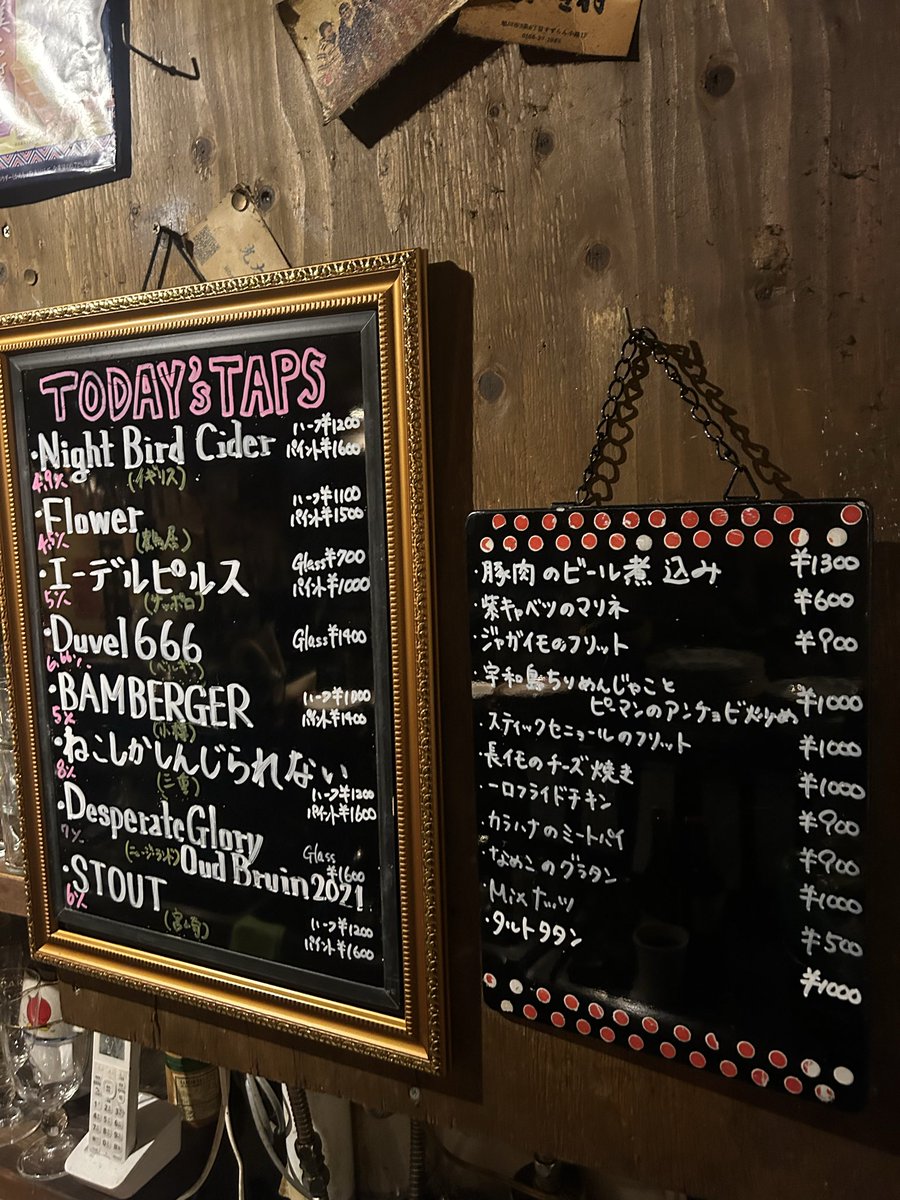 TODAY'S TAPS
・Night Bird Cider
ハーフ¥1200
パイント¥1600
4.9%
(イギリス)
・Flower
ハーフ¥1100
パイント¥1500
4.5%
・エーデルピルス
Glass¥700
パイント¥1000
5%
(サッポロ)
・Duvel 666
Glass¥1400
6.66%
・BAMBERGER
パイント¥1400
5%
(小樽)
・ねこしかしんじられない
8%
(三重)
ハーフ¥1200
パイント¥1600
・Desperate Glory
7%
(ニュージーランド) Oud Bruin 2021
Glass
¥1600
・STOUT
6%
(宮崎)
ハーフ¥1200
パイント¥1600
・豚肉のビール煮込み ¥1300
・紫キャベツのマリネ ¥600
・ジャガイモのフリット ¥900
・宇和島ちりめんじゃこと
ピーマンのアンチョビ炒め ¥1000
・スティックセニョールのフリット ¥1000
・長イモのチーズ焼き ¥1000
・一口フライドチキン ¥900
・カラハナのミートパイ ¥900
・なめこのグラタン ¥1000
・Mixナッツ ¥500
・タルトタタン ¥1000